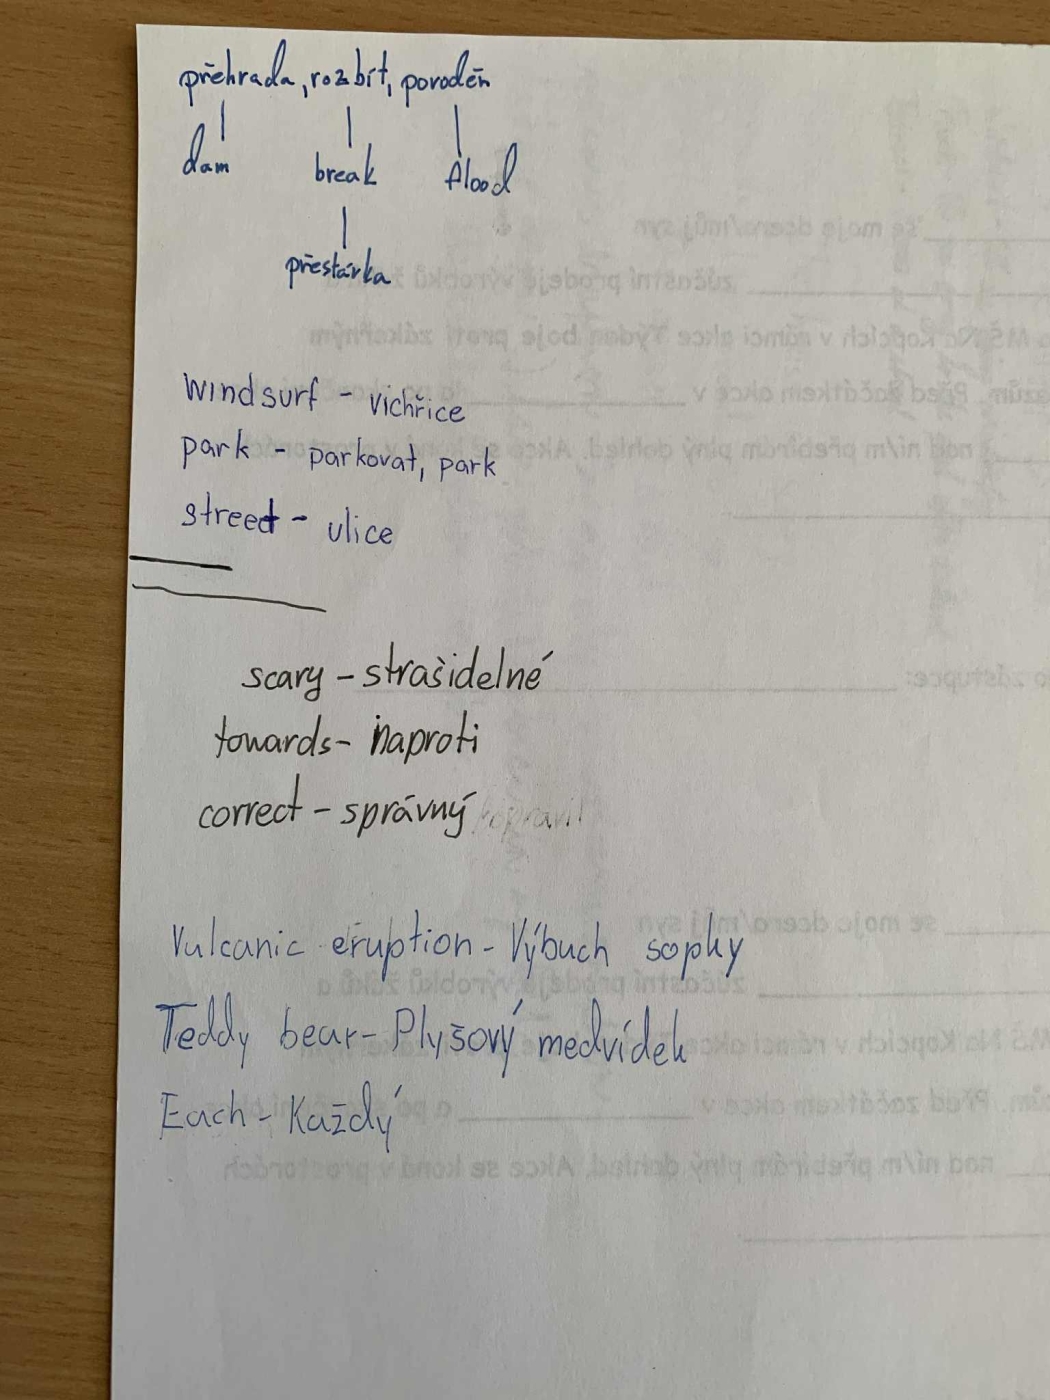 přehrada, rozbít, povoděn
dam break flood
přestávka
windsurf - vichřice
park - parkovat, park
street - ulice
scary - strašidelné
towards - naproti
correct - správný
Vulcanic eruption - Výbuch sopky
Teddy bear - Plyšový medvídek
Each - Každý